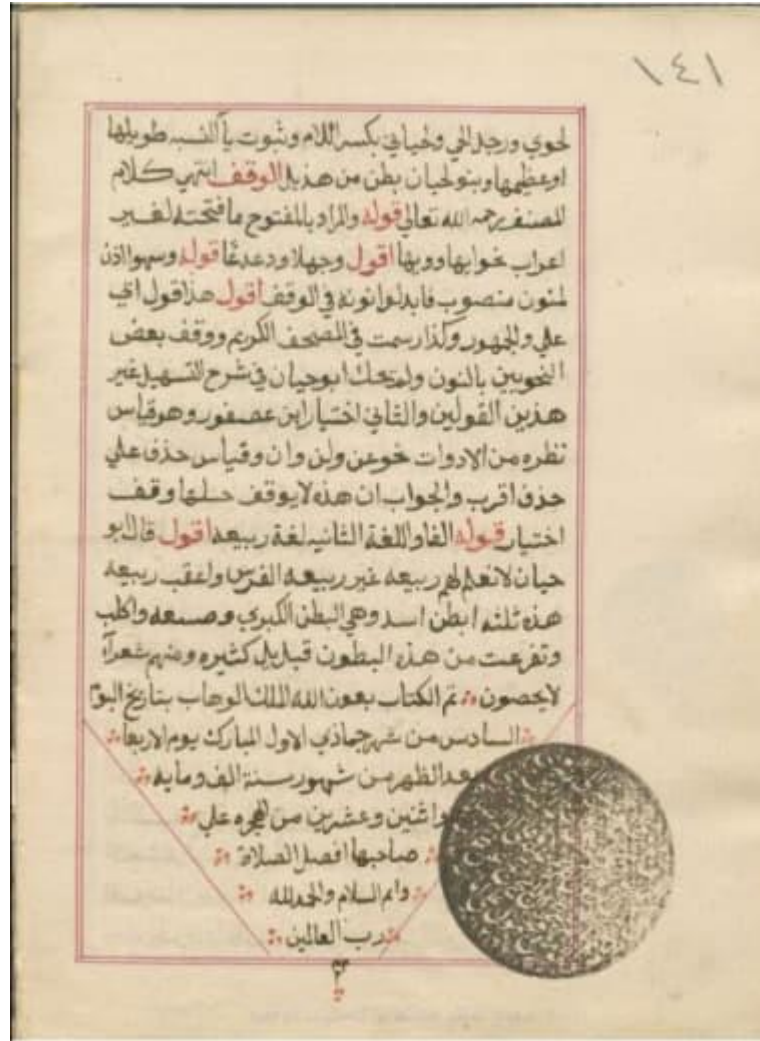 ١٤١
لحوي ورجل الحي ولحياني بكسر اللام وثبوت يا النسبه طويلها
اوعظيمها وبنو لحيان بطن من هذيل الوقف انتهي كلام
المصنف رحمه الله تعالي قوله والمراد بالمفتوح ما فتحته لغير
اعراب نحو ايها وويها اقول وجهلا ودعدعًا قوله وسهوا اذن
لمنون منصوب فابدلوا نونه في الوقف اقول هذا قول ابي
علي والجمهور وكذا رسمت في المصحف الكريم ووقف بعض
النحويين بالنون ولم يحك ابو حيان في شرح التسهيل غير
هذين القولين والثاني اختيار ابن عصفور وهو قياس
نظره من الادوات نحو عن ولن وان وقياس حذف علي
حذف اقرب والجواب ان هذه لا يوقف عليها وقف
اختيار قوله الفا واللغة الثانيه لغة ربيعه اقول قال ابو
حيان لا نعلم لهم ربيعه غير ربيعه الفرس واعقب ربيعه
هذه ثلثه ابطن اسد وهي البطن الكبري وضبيعه واكلب
وتفرعت من هذه البطون قبايل كثيره ومنهم شعرآ
لا يحصون تم الكتاب بعون الله الملك الوهاب بتاريخ اليوم
السادس من شهر جماذي الاول المبارك يوم الاربعا
بعد الظهر من شهور سنة الف ومايه
واثنين وعشرين من الهجره علي
صاحبها افضل الصلاة
واتم السلام والحمد لله
رب العالمين